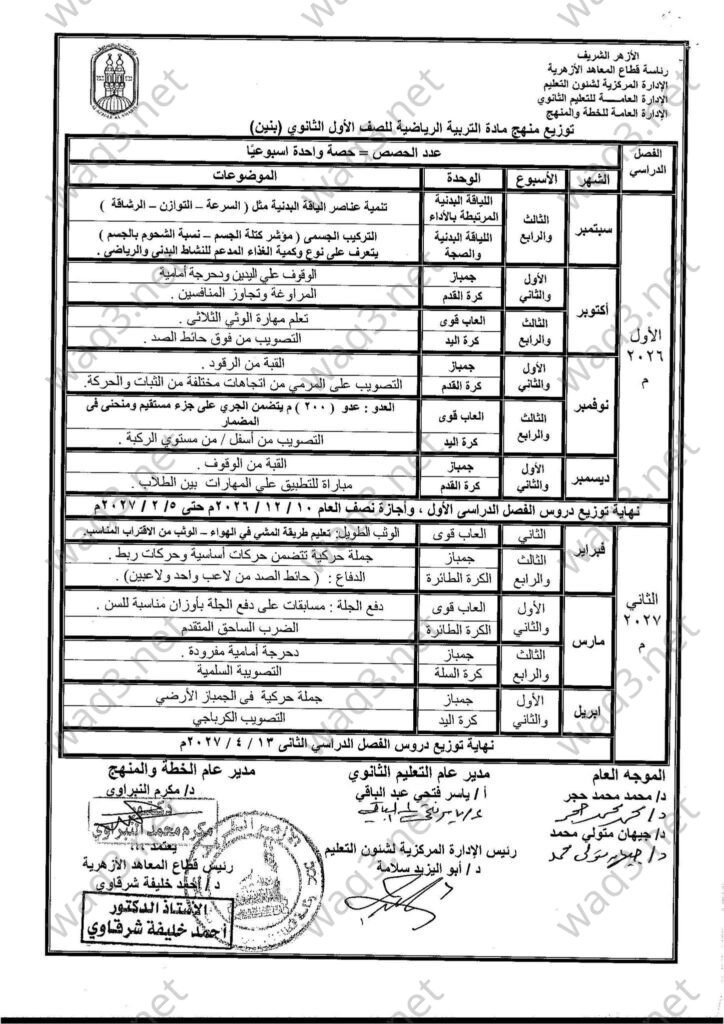 الأزهر الشريف
رئاسة قطاع المعاهد الأزهرية
الإدارة المركزية لشئون التعليم
الإدارة العامـــة للتعليم الثانوي
الإدارة العامة للخطة والمنهج
توزيع منهج مادة التربية الرياضية للصف الأول الثانوي (بنين)
الفصل الدراسي
عدد الحصص = حصة واحدة اسبوعيًا
الشهر الأسبوع الوحدة الموضوعات
الأول ٢٠٢٦ م
سبتمبر الثالث والرابع
اللياقة البدنية المرتبطة بالأداء تنمية عناصر الياقة البدنية مثل ( السرعة – التوازن – الرشاقة )
اللياقة البدنية والصحة التركيب الجسمى ( مؤشر كتلة الجسم – نسبة الشحوم بالجسم )
يتعرف على نوع وكمية الغذاء المدعم للنشاط البدنى والرياضى .
أكتوبر الأول والثاني
جمباز الوقوف علي اليدين ودحرجة أمامية
كرة القدم المراوغة وتجاوز المنافسين .
الثالث والرابع
العاب قوى تعلم مهارة الوثي الثلاثي .
كرة اليد التصويب من فوق حائط الصد .
نوفمبر الأول والثاني
جمباز القبة من الرقود .
كرة القدم التصويب على المرمي من اتجاهات مختلفة من الثبات والحركة.
الثالث والرابع
العاب قوى العدو : عدو ( ٢٠٠ ) م يتضمن الجري على جزء مستقيم ومنحنى فى المضمار
كرة اليد التصويب من أسفل / من مستوي الركبة .
ديسمبر الأول والثاني
جمباز القبة من الوقوف .
كرة القدم مباراة للتطبيق علي المهارات بين الطلاب .
نهاية توزيع دروس الفصل الدراسى الأول ، وأجازة نصف العام ١٠ / ١٢ / ٢٠٢٦م حتى ٥ / ٢ / ٢٠٢٧م
الثاني ٢٠٢٧ م
فبراير الثاني العاب قوى الوثب الطويل: تعليم طريقة المشي في الهواء – الوثب من الاقتراب المناسب.
الثالث والرابع
جمباز جملة حركية تتضمن حركات أساسية وحركات ربط .
الكرة الطائرة الدفاع : ( حائط الصد من لاعب واحد ولاعبين) .
مارس الأول والثاني
العاب قوى دفع الجلة : مسابقات على دفع الجلة بأوزان مناسبة للسن .
الكرة الطائرة الضرب الساحق المتقدم
الثالث والرابع
جمباز دحرجة أمامية مفرودة .
كرة السلة التصويبة السلمية
ابريل الأول والثاني
جمباز جملة حركية فى الجمباز الأرضي
كرة اليد التصويب الكرباجي
نهاية توزيع دروس الفصل الدراسي الثانى ١٣ / ٤ / ٢٠٢٧م
الموجه العام مدير عام التعليم الثانوي مدير عام الخطة والمنهج
د/ محمد محمد حجر أ / ياسر فتحي عبد الباقي د/ مكرم النبراوى
د/ جيهان متولي محمد
مكرم محمد النبراوى
يعتمد ،،،
رئيس الإدارة المركزية لشئون التعليم
د / أبو اليزيد سلامة
رئيس قطاع المعاهد الأزهرية
د / أحمد خليفة شرقاوي
الأستاذ الدكتور
أحمد خليفة شرقاوي
waq3.net